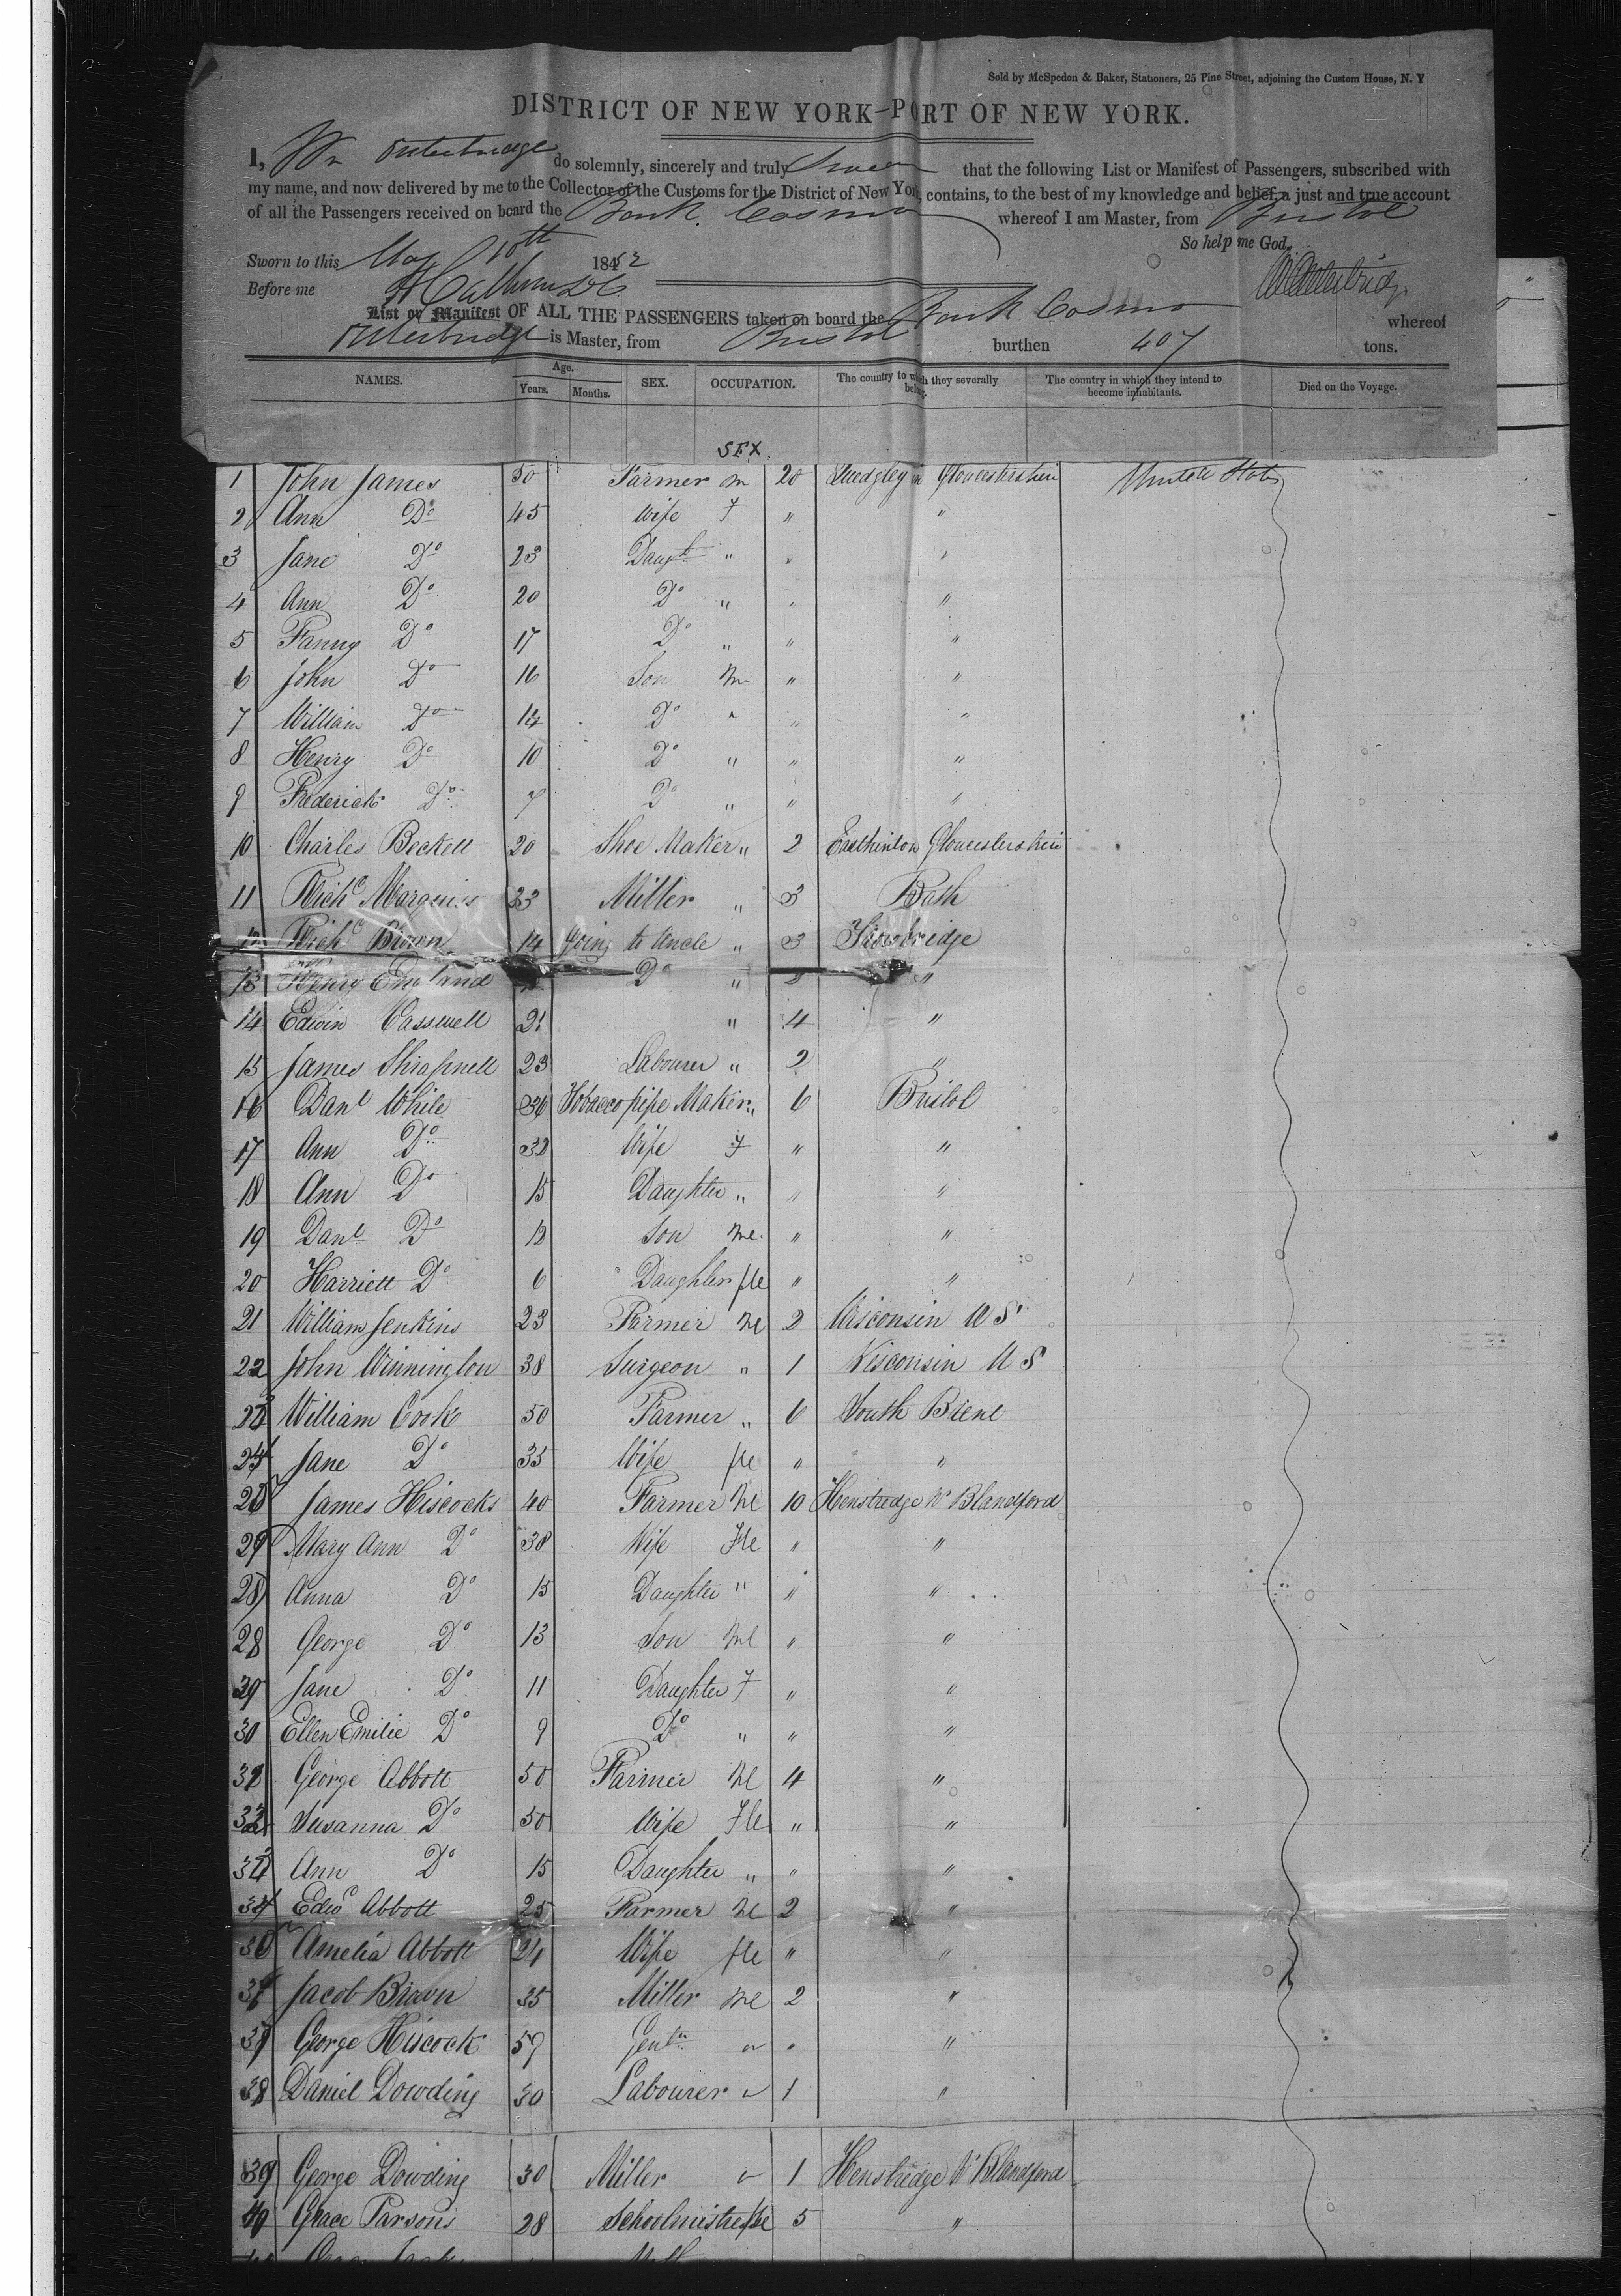 Sold by McSpedon & Baker, Stationers, 25 Pine Street, adjoining the Custom House, N. Y
DISTRICT OF NEW YORK—PORT OF NEW YORK.
I, Wm Outerbridge do solemnly, sincerely and truly Swear that the following List or Manifest of Passengers, subscribed with
my name, and now delivered by me to the Collector of the Customs for the District of New York, contains, to the best of my knowledge and belief, a just and true account
of all the Passengers received on board the Bark Cosmo whereof I am Master, from Bristol
So help me God.
Sworn to this May 10th 1852
Before me
List or Manifest OF ALL THE PASSENGERS taken on board the Bark Cosmo whereof
Outerbridge is Master, from Bristol burthen 407 tons.
NAMES. Age. Years. Months. SEX. OCCUPATION. The country to which they severally belong. The country in which they intend to become inhabitants. Died on the Voyage.
SEX.
1 John James 50 Farmer m 20 Quedgley Gloucestershire United States
2 Ann Do 45 Wife F " "
3 Jane Do 23 Daughtr " " "
4 Ann Do 20 Do " " "
5 Fanny Do 17 Do " " "
6 John Do 16 Son m " "
7 William Do 14 Do " " "
8 Henry Do 10 Do " " "
9 Frederick Do 7 Do " " "
10 Charles Beckett 20 Shoe Maker " 2 Gloucestershire
11 Richd Marquiss 23 Miller " 3 Bath
12 Richd Brown 14 Going to Uncle " 3 Trowbridge
13 Henry England Do " "
14 Edwin Casswell 21 " 4 "
15 James Shrapnell 23 Labourer " 2 "
16 Danl White 36 Tobacco pipe Maker " 6 Bristol
17 Ann Do 32 Wife F " "
18 Ann Do 15 Daughter " " "
19 Danl Do 12 Son Me " "
20 Harriett Do 6 Daughter fle " "
21 William Jenkins 23 Farmer Me 2 Wisconsin U S
22 John Winnington 38 Surgeon " 1 Wisconsin U S
23 William Cook 50 Farmer " 6 South Brent
24 Jane Do 35 Wife fle " "
25 James Hiscocks 40 Farmer Me 10 Henstridge Nr Blandford
Mary Ann Do 38 Wife Fle " "
Anna Do 15 Daughter " " "
28 George Do 13 Son Me " "
29 Jane Do 11 Daughter F " "
30 Ellen Emilie Do 9 Do " " "
George Abbott 50 Farmer Me 4 "
Susanna Do 50 Wife Fle " "
Ann Do 15 Daughter " " "
34 Edwd Abbott 25 Farmer Me 2 "
Amelia Abbott 24 Wife fle " "
Jacob Brown 35 Miller Me 2 "
37 George Hiscock 59 Gentn " "
38 Daniel Dowding 30 Labourer " 1 "
39 George Dowding 30 Miller " 1 Henstridge Nr Blandford
40 Grace Parsons 28 Schoolmistress fle 5 "